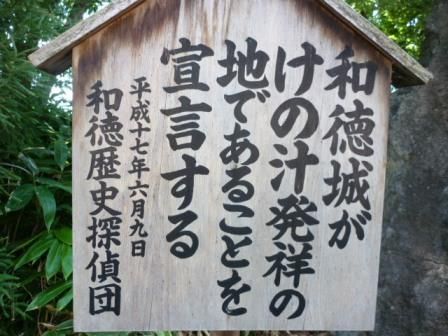 和徳城が
けの汁発祥の
地であることを
宣言する
平成十七年六月九日
和徳歴史探偵団